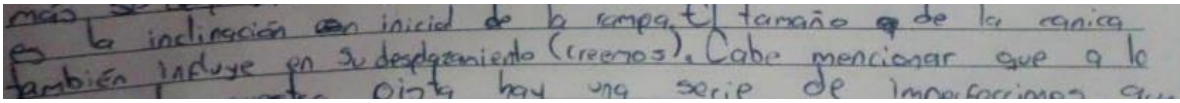 más
es la inclinación inicial de la rampa. El tamaño de la canica
también influye en su desplazamiento (creemos). Cabe mencionar que a lo
pista hay una serie de imperfecciones que